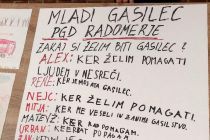 MLADI GASILEC
PGD RADOMERJE
ZAKAJ SI ŽELIM BITI GASILEC?
ALEX: KER ŽELIM POMAGATI
LJUDEM V NESREČI.
RENE: GASILEC
NEJC: KER ŽELIM POMAGATI.
MITJA: KER ME VESELI IN ZANIMA GASILSTVO.
MATEVŽ: KER RAD
URBAN: KER POMAGAM